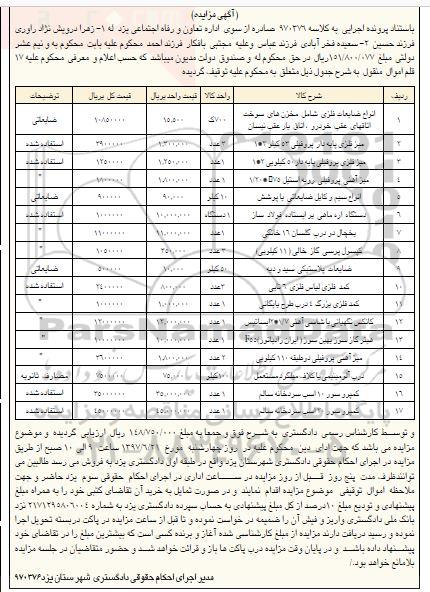 (آگهی مزایده)
باستناد پرونده اجرایی به کلاسه ۹۷۰۳۷۶ صادره از سوی اداره تعاون و رفاه اجتماعی یزد له ۱- زهرا درویش نژاد راوری
فرزند حسین ۲-سعیده فخرآبادی فرزند عباس وعلیه مجتبی بافکار فرزند احمد محکوم علیه بابت محکوم به و نیم عشر
دولتی مبلغ ۱۵۱/۸۰۰/۰۷۷ریال در حق محکوم له و صندوق دولت مدیون میباشد که حسب اعلام و معرفی محکوم علیه ۱۷
قلم اموال منقول به شرح جدول ذیل متعلق به محکوم علیه توقیف گردیده
ردیف شرح کالا واحد کالا قیمت واحد بریال قیمت کل بریال توضیحات
۱ انواع ضایعات فلزی شامل مخزن های سوخت
اتاقهای عقب خودرو ، اتاق بار عقب نیسان ۷۰۰ک ۱۵,۵۰۰ ۱۰/۸۵۰۰۰۰ ضایعاتی
۲ میز فلزی پایه دار پروفیلی ۵۳ کیلو ۲*۱ ۳عدد ۱,۳۰۰,۰۰۰ ۳۹۰۰۰۰۰ استفاده شده
۳ میز فلزی پروفیلی پایه دار ۵۰ کیلویی ۲*۱ ۱عدد ۱,۲۵۰,۰۰۰ ۱۲۵۰۰۰۰ استفاده شده
۴ میز آهنی پروفیلی رویه استیل ۱عدد ۱,۸۰۰,۰۰۰ ۱۸۰۰۰۰۰ "
۵ انواع سیم و کابل ضایعاتی با پوشش ۱۰ کیلو ۹۰,۰۰۰ ۹۰۰۰۰۰ ضایعاتی
۶ دستگاه اره ماهی بر ایستاده فولاد ساز ۱دستگاه ۱۰,۰۰۰,۰۰۰ ۱۰۰۰۰۰۰۰ استفاده شده
۷ یخچال دو درب گلسان ۱۶ خانگی ۱عدد ۱۱,۰۰۰,۰۰۰ ۱۱۰۰۰۰۰۰ "
۸ کپسول پرسی گاز خالی (۱۱ کیلویی) ۳عدد "
۹ ضایعات پلاستیکی سبد و دبه ۵۰ کیلو ۱۰,۰۰۰ ۵۰۰۰۰۰ ضایعاتی
۱۰ کمد فلزی لباس فلزی ۶ تایی ۳عدد ۸۰۰,۰۰۰ ۲۴۰۰۰۰۰ استفاده شده
۱۱ کمد فلزی بزرگ ۴ درب طرح بایگانی ۱عدد ۱,۰۰۰,۰۰۰ ۱۰۰۰۰۰۰ "
۱۲ کانکس نگهبانی با شاسی آهنی ۱عدد ۱۲,۰۰۰,۰۰۰ ۱۲۰۰۰۰۰۰ "
۱۳ هیتر گاز سوز بهین سوز (ایران رادیاتور) ۱عدد ۱۰,۰۰۰,۰۰۰ ۱۰۰۰۰۰۰۰ "
۱۴ میز آهنی پروفیلی دو طبقه ۱۱۰ کیلویی ۲عدد ۱,۸۰۰,۰۰۰ ۳۶۰۰۰۰۰ "
۱۵ درب آلومینیمی با کلاف میلگرد مستعمل ۱۰۰کیلو ۷۵,۰۰۰ ۷۵۰۰۰۰۰ مصارف ثانویه
۱۶ کمپرسور ۱۰ اسب سردخانه سالم ۱عدد ۳۵,۰۰۰,۰۰۰ ۳۵۰۰۰۰۰۰ استفاده شده
۱۷ کمپرسور ۲۰ اسب سردخانه سالم ۱عدد ۴۵,۰۰۰,۰۰۰ ۴۵۰۰۰۰۰۰ استفاده شده
و توسط کارشناس رسمی دادگستری به شرح فوق و جمعا به مبلغ ۱۴۸/۷۵۰/۰۰۰ ریال ارزیابی گردیده و موضوع
مزایده می باشد که جهت ادای دین محکوم علیه در روز چهارشنبه مورخ ۱۳۹۷/۶/۲۱ ساعت ۹ الی ۱۰ صبح از طریق
مزایده در اجرای احکام حقوقی دادگستری شهرستان یزد واقع در طبقه اول دادگستری یزد به فروش می رسد طالبین می
توانند ظرف مدت پنج روز قبل از روز مزایده در ساعات اداری در اجرای احکام حقوقی سوم یزد حاضر و جهت
ملاحظه اموال توقیفی موضوع مزایده اقدام نمایند و در صورت تمایل به خرید آن تقاضای کتبی خود را به همراه مبلغ
پیشنهادی و تودیع مبلغ ۱۰درصد از کل مبلغ پیشنهادی به حساب سپرده دادگستری یزد به شماره ۲۱۷۱۲۹۵۸۰۶۰۰۴ نزد
بانک ملی دادگستری واریز و فیش آن را ضمیمه در خواست نموده و تا قبل از ساعت مزایده در پاکت دربسته تحویل اجرا
نموده و رسید دریافت دارند مزایده از مبلغ کارشناسی شده آغاز و برنده کسی است که بیشترین مبلغ را در تقاضای خود
پیشنهاد داده باشد و در پایان وقت مزایده درب پاکت ها باز و قرائت خواهد شد و حضور متقاضیان در جلسه مزایده
بلامانع خواهد بود./
مدیر اجرای احکام حقوقی دادگستری شهرستان یزد۹۷۰۳۷۶